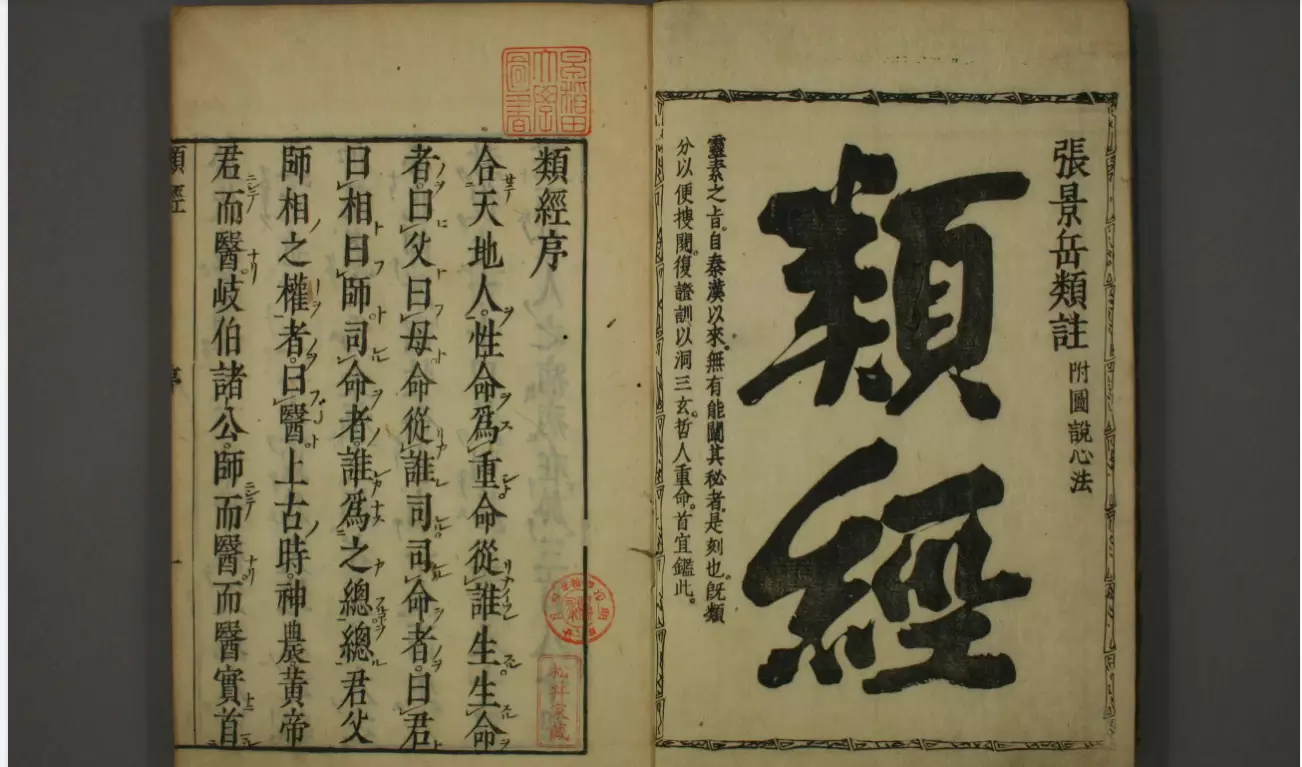 張景岳類註 附圖說心法
類經
靈素之旨。自秦漢以來。無有能闡其秘者。是刻也。既類
分以便搜閱。復證訓以洞三玄。哲人重命。首宜鑑此。
早稻田大學圖書
類經序
松井家藏
合天地人。性命爲重。命從誰生。生命
者。曰父曰母。命從誰司。司命者。曰君
曰相曰師。司命者。誰爲之總。總君父
師相之權者。曰醫。上古時。神農黃帝
君而醫。岐伯諸公。師而醫。而醫實首
類經 序 一